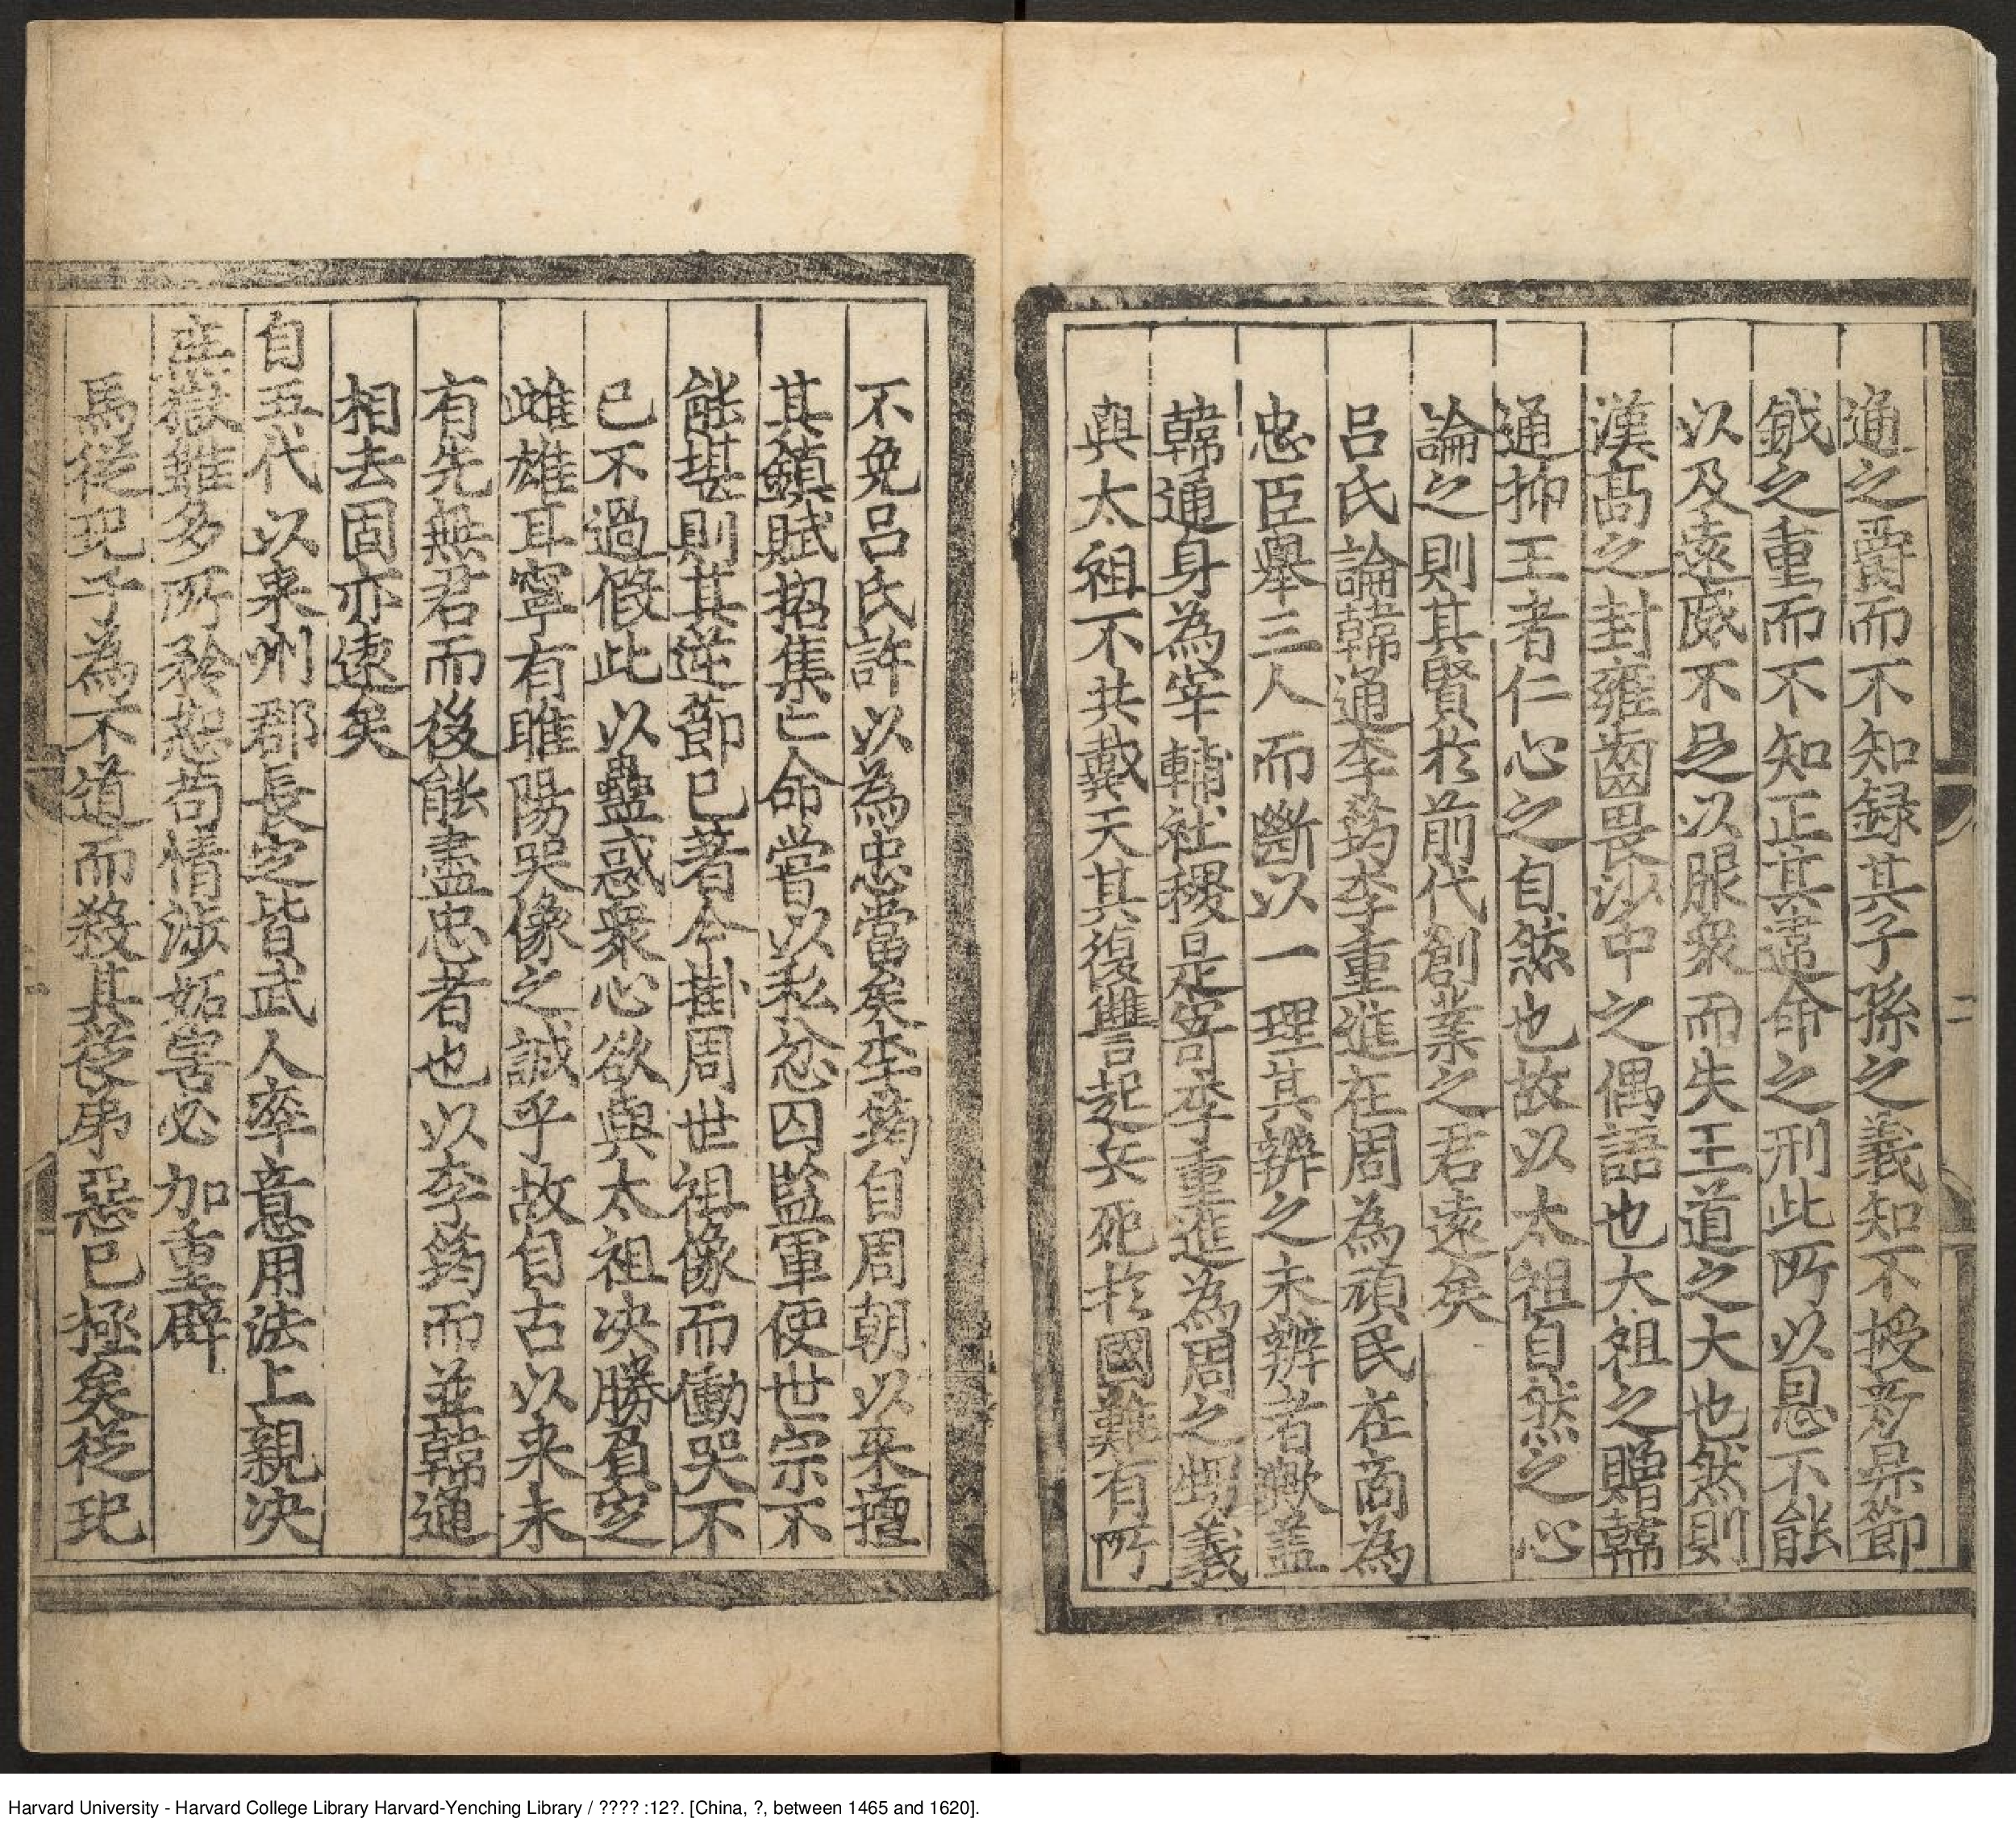 通之爵而不知録其子孫之義知不授彥昇節
鉞之重而不知正其違命之刑此所以恩不能
以及遠威不足以服衆而失王道之大也然則
漢高之封雍齒畏沙中之偶語也大祖之贈韓
通抑王者仁心之自然也故以太祖自然之心
論之則其賢於前代創業之君遠矣
呂氏論韓通李筠李重進在周為頑民在商為
忠臣舉三人而斷以一理其辨之未辨者歟盖
韓通身為宰輔社稷是寄李重進為周之甥義
與太祖不共戴天其復讐起兵死於國難有所
二
不免呂氏許以為忠當矣李筠自周朝以来擅
其鎮賦招集亡命嘗以私忿囚監軍使世宗不
能堪則其逆節已著今掛周世祖像而慟哭不
已不過假此以蠱惑衆心欲與太祖决勝負定
雌雄耳寧有睢陽哭像之誠乎故自古以来未
有先無君而後能盡忠者也以李筠而並韓通
相去固亦遠矣
自五代以来州郡長吏皆武人率意用法上親决
庶獄雖多所矜恕苟情涉妬害必加重辟
馬從玘子為不道而殺其從弟惡已極矣從玘
Harvard University - Harvard College Library Harvard-Yenching Library / ???? :12?. [China, ?, between 1465 and 1620].